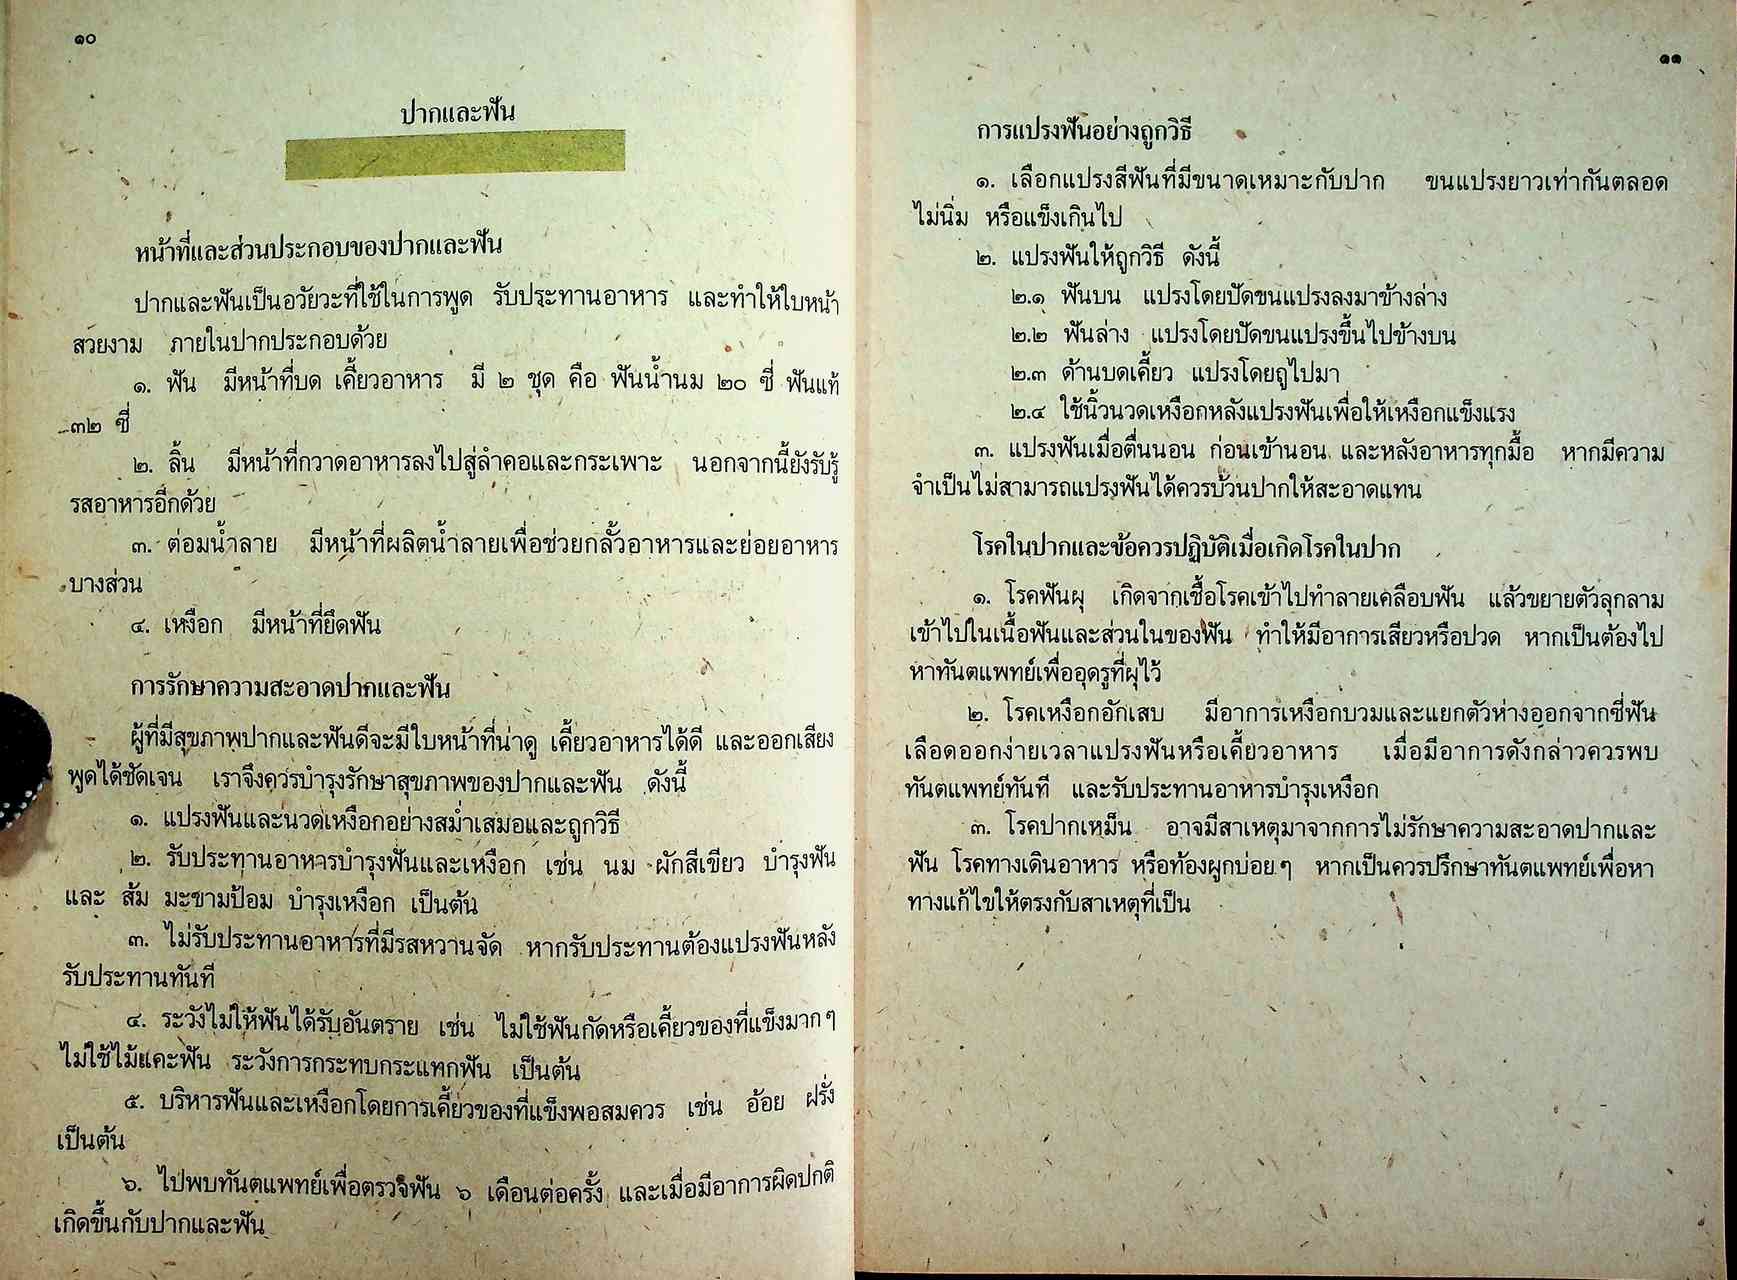 ๑๐
ปากและฟัน
หน้าที่และส่วนประกอบของปากและฟัน
ปากและฟันเป็นอวัยวะที่ใช้ในการพูด รับประทานอาหาร และทำให้ใบหน้า
สวยงาม ภายในปากประกอบด้วย
๑. ฟัน มีหน้าที่บด เคี้ยวอาหาร มี ๒ ชุด คือ ฟันน้ำนม ๒๐ ซี่ ฟันแท้
๓๒ ซี่
๒. ลิ้น มีหน้าที่กวาดอาหารลงไปสู่ลำคอและกระเพาะ นอกจากนี้ยังรับรู้
รสอาหารอีกด้วย
๓. ต่อมน้ำลาย มีหน้าที่ผลิตน้ำลายเพื่อช่วยกลั้วอาหารและย่อยอาหาร
บางส่วน
๔. เหงือก มีหน้าที่ยึดฟัน
การรักษาความสะอาดปากและฟัน
ผู้ที่มีสุขภาพปากและฟันดีจะมีใบหน้าที่น่าดู เคี้ยวอาหารได้ดี และออกเสียง
พูดได้ชัดเจน เราจึงควรบำรุงรักษาสุขภาพของปากและฟัน ดังนี้
๑. แปรงฟันและนวดเหงือกอย่างสม่ำเสมอและถูกวิธี
๒. รับประทานอาหารบำรุงฟันและเหงือก เช่น นม ผักสีเขียว บำรุงฟัน
และ ส้ม มะขามป้อม บำรุงเหงือก เป็นต้น
๓. ไม่รับประทานอาหารที่มีรสหวานจัด หากรับประทานต้องแปรงฟันหลัง
รับประทานทันที
๔. ระวังไม่ให้ฟันได้รับอันตราย เช่น ไม่ใช้ฟันกัดหรือเคี้ยวของที่แข็งมากๆ
ไม่ใช้ไม้แคะฟัน ระวังการกระทบกระแทกฟัน เป็นต้น
๕. บริหารฟันและเหงือกโดยการเคี้ยวของที่แข็งพอสมควร เช่น อ้อย ฝรั่ง
เป็นต้น
๖. ไปพบทันตแพทย์เพื่อตรวจฟัน ๖ เดือนต่อครั้ง และเมื่อมีอาการผิดปกติ
เกิดขึ้นกับปากและฟัน
๑๑
การแปรงฟันอย่างถูกวิธี
๑. เลือกแปรงสีฟันที่มีขนาดเหมาะกับปาก ขนแปรงยาวเท่ากันตลอด
ไม่นิ่ม หรือแข็งเกินไป
๒. แปรงฟันให้ถูกวิธี ดังนี้
๒.๑ ฟันบน แปรงโดยปัดขนแปรงลงมาข้างล่าง
๒.๒ ฟันล่าง แปรงโดยปัดขนแปรงขึ้นไปข้างบน
๒.๓ ด้านบดเคี้ยว แปรงโดยถูไปมา
๒.๔ ใช้นิ้วนวดเหงือกหลังแปรงฟันเพื่อให้เหงือกแข็งแรง
๓. แปรงฟันเมื่อตื่นนอน ก่อนเข้านอน และหลังอาหารทุกมื้อ หากมีความ
จำเป็นไม่สามารถแปรงฟันได้ควรบ้วนปากให้สะอาดแทน
โรคในปากและข้อควรปฏิบัติเมื่อเกิดโรคในปาก
๑. โรคฟันผุ เกิดจากเชื้อโรคเข้าไปทำลายเคลือบฟัน แล้วขยายตัวลุกลาม
เข้าไปในเนื้อฟันและส่วนในของฟัน ทำให้มีอาการเสียวหรือปวด หากเป็นต้องไป
หาทันตแพทย์เพื่ออุดรูที่ผุไว้
๒. โรคเหงือกอักเสบ มีอาการเหงือกบวมและแยกตัวห่างออกจากซี่ฟัน
เลือดออกง่ายเวลาแปรงฟันหรือเคี้ยวอาหาร เมื่อมีอาการดังกล่าวควรพบ
ทันตแพทย์ทันที และรับประทานอาหารบำรุงเหงือก
๓. โรคปากเหม็น อาจมีสาเหตุมาจากการไม่รักษาความสะอาดปากและ
ฟัน โรคทางเดินอาหาร หรือท้องผูกบ่อยๆ หากเป็นควรปรึกษาทันตแพทย์เพื่อหา
ทางแก้ไขให้ตรงกับสาเหตุที่เป็น